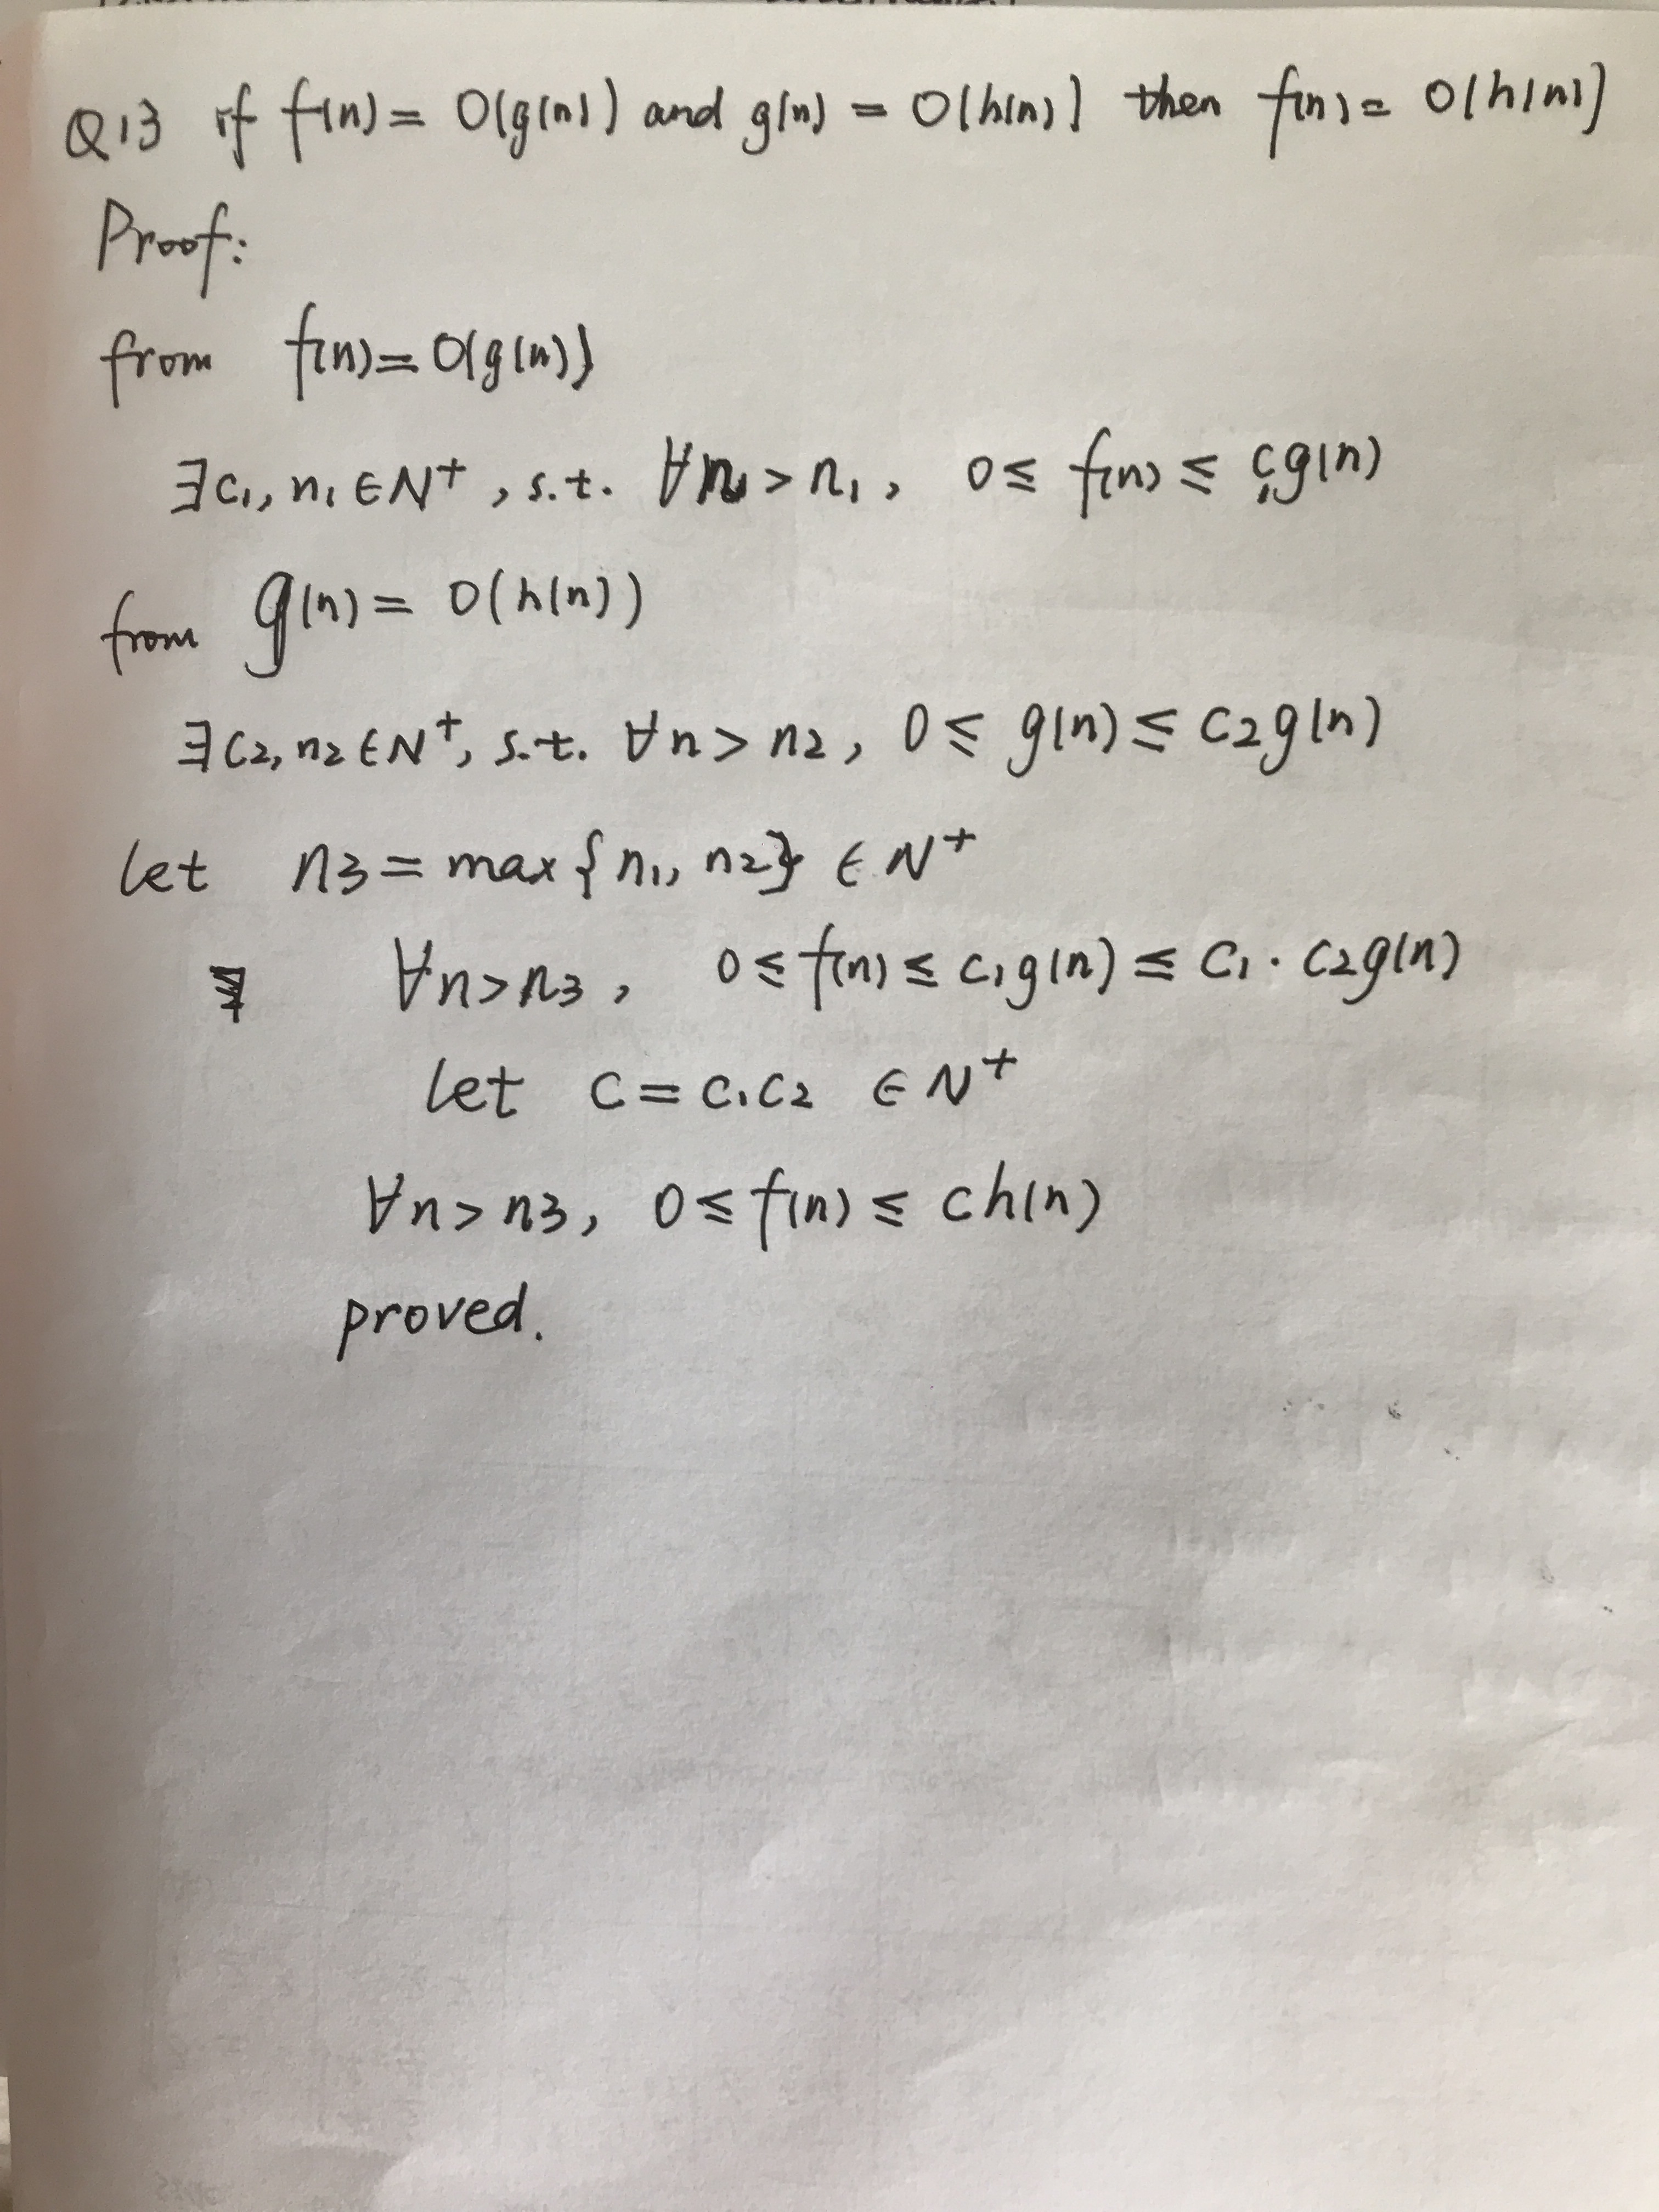 Q13 if f(n) = O(g(n)) and g(n) = O(h(n)) then f(n) = O(h(n))
Proof:
from f(n) = O(g(n))
∃ c₁, n₁ ∈ N⁺, s.t. ∀n > n₁, 0 ≤ f(n) ≤ c₁g(n)
from g(n) = O(h(n))
∃ c₂, n₂ ∈ N⁺, s.t. ∀n > n₂, 0 ≤ g(n) ≤ c₂g(n)
let n₃ = max{n₁, n₂} ∈ N⁺
∀n > n₃, 0 ≤ f(n) ≤ c₁g(n) ≤ c₁ · c₂g(n)
let c = c₁c₂ ∈ N⁺
∀n > n₃, 0 ≤ f(n) ≤ ch(n)
proved.